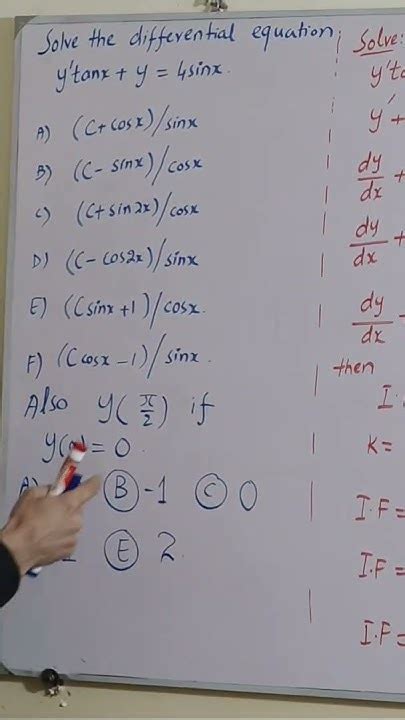 Solve the differential equation;
y'tanx + y = 4sinx.
A) (C+cosx)/sinx
B) (C- sinx)/cosx
C) (C+sin2x)/cosx
D) (C-cos2x)/sinx
E) (Csinx+1)/cosx.
F) (Ccosx-1)/sinx.
Also y(π/2) if
y( )=0.
A) B -1 C 0
E 2.
Solve:
y'ta
y' +
dy/dx +
dy/dx +
dy/dx
then
I.
K=
I.F=
I.F=
I.F=